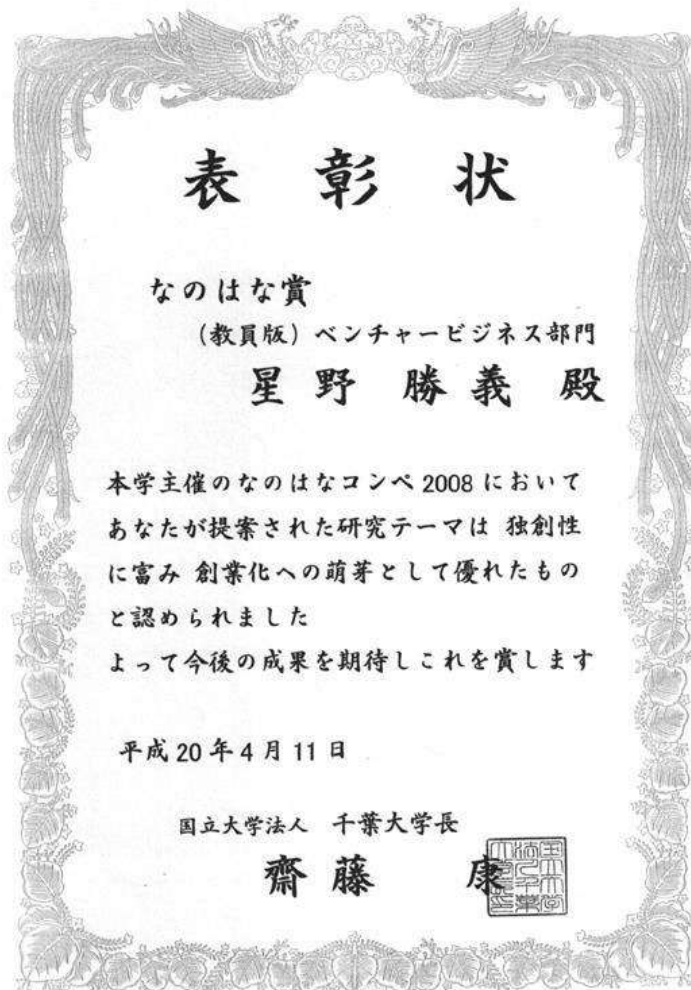 表彰状
なのはな賞
(教員版) ベンチャービジネス部門
星野 勝義 殿
本学主催のなのはなコンペ 2008 において
あなたが提案された研究テーマは 独創性
に富み 創業化への萌芽として優れたもの
と認められました
よって今後の成果を期待しこれを賞します
平成 20 年 4 月 11 日
国立大学法人 千葉大学長
齋藤 康